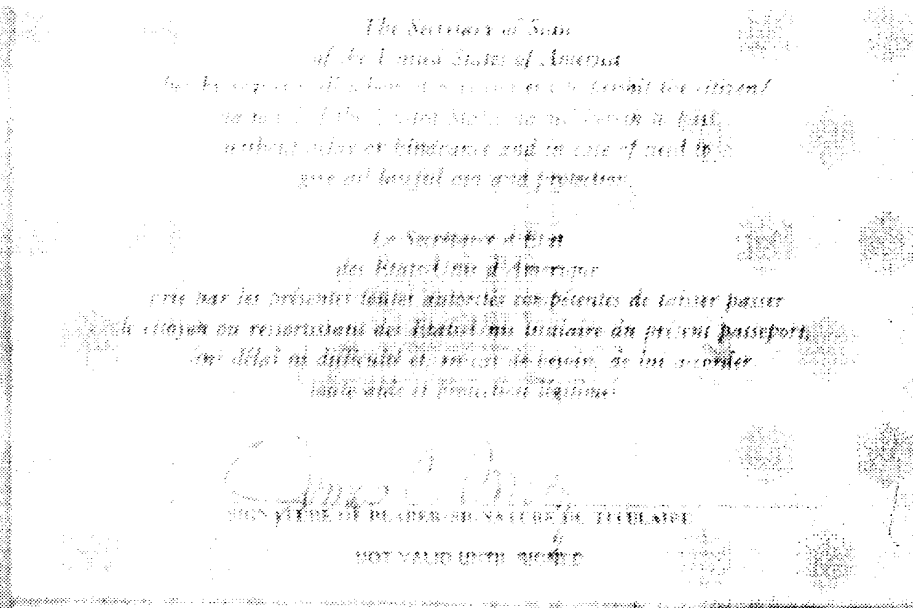 The Secretary of State
of the United States of America
hereby requests all whom it may concern to permit the citizen/
national of the United States named herein to pass
without delay or hindrance and in case of need to
give all lawful aid and protection.
Le Secrétaire d'Etat
des Etats-Unis d'Amérique
prie par les présentes toutes autorités compétentes de laisser passer
le citoyen ou ressortissant des Etats-Unis titulaire du présent passeport,
sans délai ni difficulté et, en cas de besoin, de lui accorder
toute aide et protection légitimes.
SIGNATURE OF BEARER/SIGNATURE DU TITULAIRE
NOT VALID UNTIL SIGNED